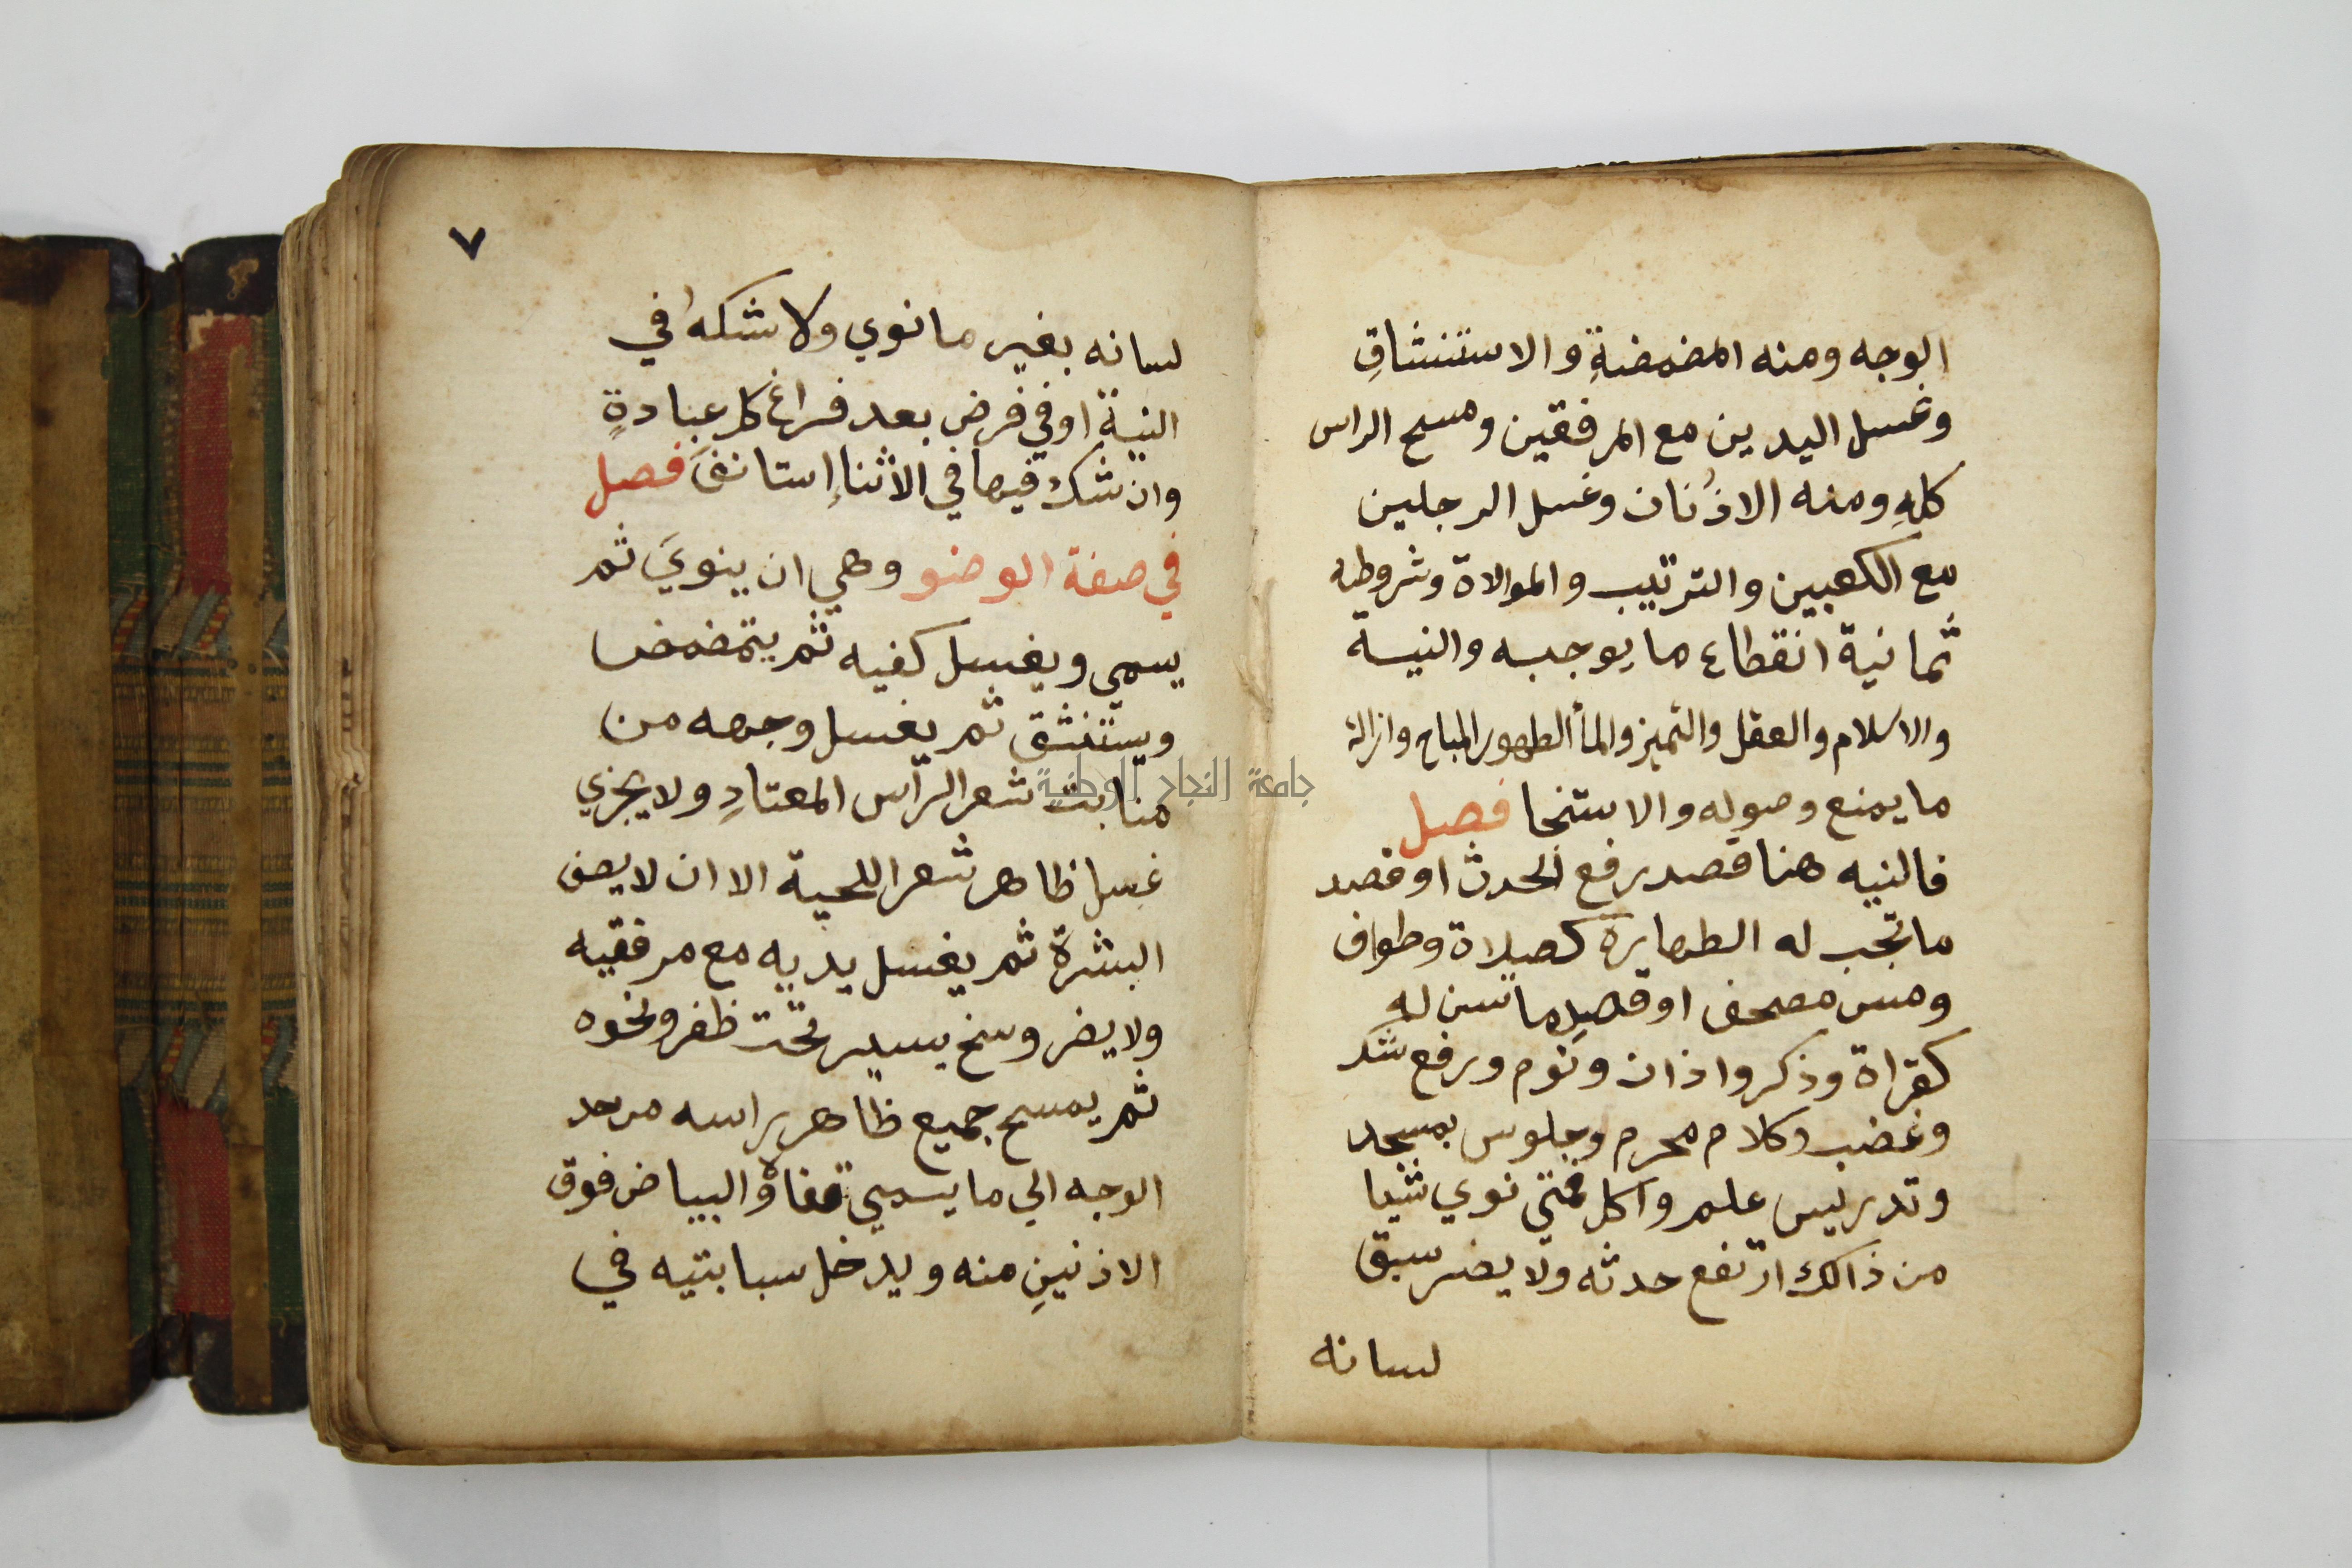 الوجه ومنه المضمضةِ والاستنشاقِ
وغسل اليدين مع المرفقين ومسح الراس
كلهِ ومنه الاذُنان وغسل الرجلين
مع الكعبين والترتيب والموالاة وشروطه
ثمانية انقطاع ما يوجبه والنية
والاسلام والعقل والتميز والمأ الطهور المباح وازالة
ما يمنع وصوله والاستنجا فصل
فالنيه هنا قصد رفع الحدث او قصد
ما تجب له الطهارة كصلاة وطواف
ومس مصحف او قصدِ ما تسن له
كقراة وذكر واذان ونوم ورفع شك
وغضب وكلام محرم وجلوس بمسجد
وتدريس علم واكل فمتي نوي شيا
من ذالك ارتفع حدثه ولا يضر سبق
لسانه
٧
لسانه بغير ما نوي ولا شكه في
النية او في فرض بعد فراغ كل عبادةٍ
وان شك فيها في الاثناءِ استانفَ فصل
في صفة الوضو وهي ان ينويَ ثم
يسمي ويغسل كفيه ثم يتمضمض
ويستنشق ثم يغسل وجهه من
منابت شعر الراس المعتادِ ولا يجزي
غسل ظاهر شعر اللحية الا ان لا يصف
البشرة ثم يغسل يديه مع مرفقيه
ولا يضر وسخ يسير تحت ظفر ونحوه
ثم يمسح جميع ظاهر راسه من حد
الوجه الي ما يسمي قفاه والبياض فوق
الاذنينِ منه ويدخل سبابتيه في
جامعة النجاح الوطنية